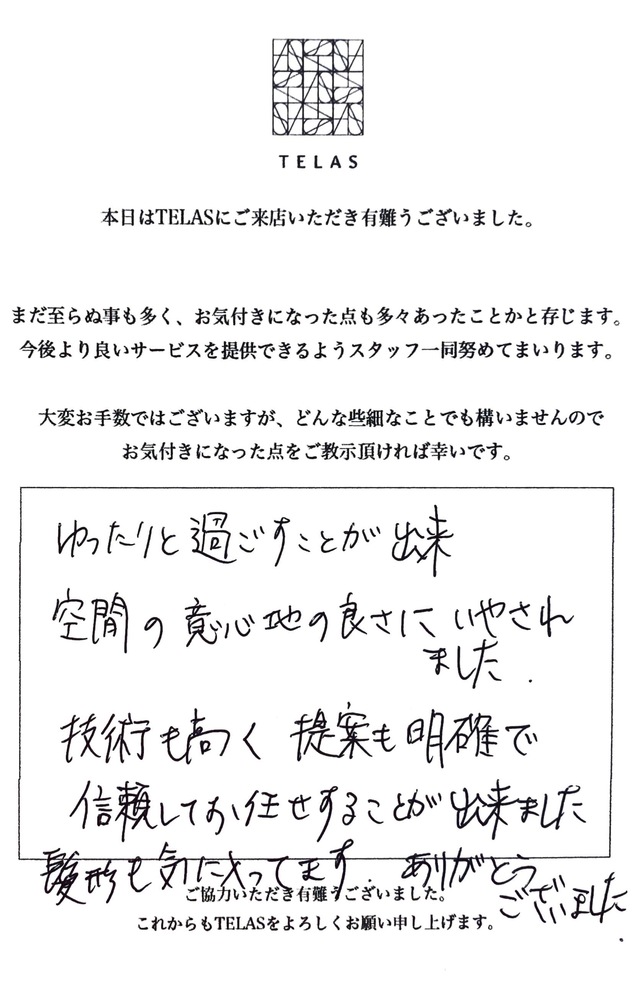 TELAS
本日はTELASにご来店いただき有難うございました。
まだ至らぬ事も多く、お気付きになった点も多々あったことかと存じます。
今後より良いサービスを提供できるようスタッフ一同努めてまいります。
大変お手数ではございますが、どんな些細なことでも構いませんので
お気付きになった点をご教示頂ければ幸いです。
ゆったりと過ごすことが出来
空間の意心地の良さに いやされ
ました.
技術も高く 提案も明確で
信頼してお任せすることが出来ました
髪形も気に入ってます. ありがとう
ございました.
ご協力いただき有難うございました。
これからもTELASをよろしくお願い申し上げます。